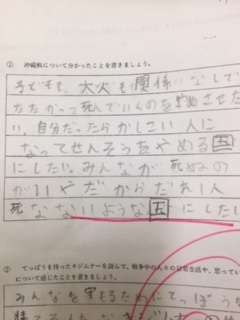 ② 沖縄戦について分かったことを書きましょう。
子どもも、大人も関係なしで
たたかって死んでいくのを
い。自分だったらかしこい人に
なってせんそうをやめる国
にしたい。みんなが死ぬの
がいやだからだれ1人
死なないような国にしたい
② てっぽうを持ったキジムナーを読んで、戦争中の人々の
について感じたことを書きましょう。
みんなを守るためにてっぽうを